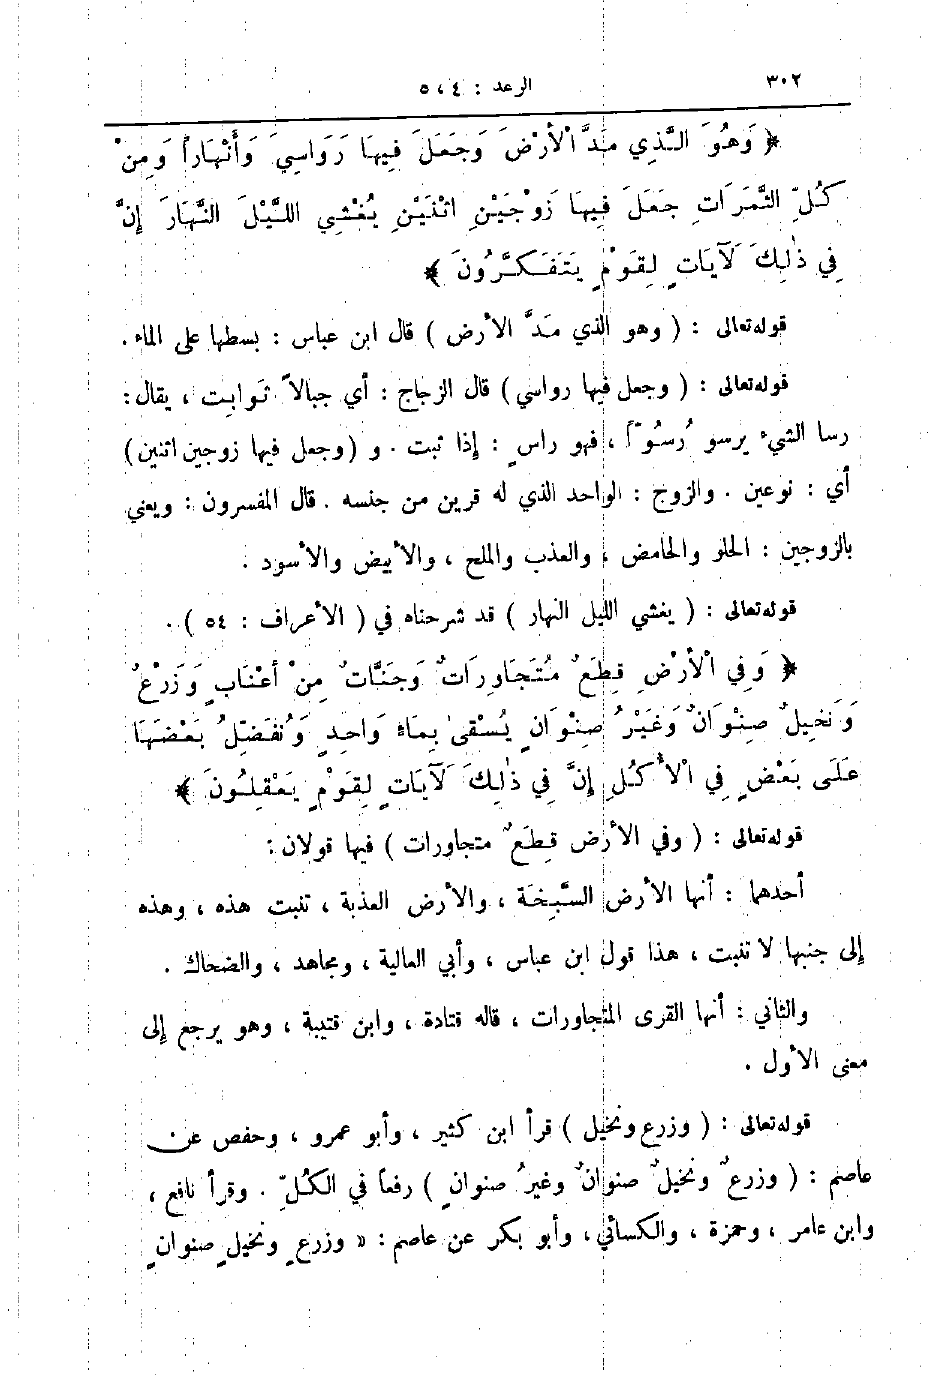 ٣٠٢
الرعد : ٤ ، ٥
﴿ وَهُوَ الَّذِي مَدَّ الْأَرْضَ وَجَعَلَ فِيهَا رَوَاسِيَ وَأَنْهَاراً وَمِنْ
كُلِّ الثَّمَرَاتِ جَعَلَ فِيهَا زَوْجَيْنِ اثْنَيْنِ يُغْشِي اللَّيْلَ النَّهَارَ إِنَّ
فِي ذٰلِكَ لَآيَاتٍ لِقَوْمٍ يَتَفَكَّرُونَ ﴾
قوله تعالى : ( وهو الذي مَدَّ الأرض ) قال ابن عباس : بسطها على الماء .
قوله تعالى : ( وجعل فيها رواسي ) قال الزجاج : أي جبالاً ثوابت ، يقال :
رسا الشيء يرسو رُسُوّاً ، فهو راسٍ : إذا ثبت . و (وجعل فيها زوجين اثنين)
أي : نوعين . والزوج : الواحد الذي له قرين من جنسه . قال المفسرون : ويعني
بالزوجين : الحلو والحامض ، والعذب والملح ، والأبيض والأسود .
قوله تعالى : ( يغشي الليل النهار ) قد شرحناه في ( الأعراف : ٥٤ ) .
﴿ وَفِي الْأَرْضِ قِطَعٌ مُتَجَاوِرَاتٌ وَجَنَّاتٌ مِنْ أَعْنَابٍ وَزَرْعٌ
وَنَخِيلٌ صِنْوَانٌ وَغَيْرُ صِنْوَانٍ يُسْقىٰ بِمَاءٍ وَاحِدٍ وَنُفَضِّلُ بَعْضَهَا
عَلَى بَعْضٍ فِي الْأُكُلِ إِنَّ فِي ذٰلِكَ لَآيَاتٍ لِقَوْمٍ يَعْقِلُونَ ﴾
قوله تعالى : ( وفي الأرض قِطَعٌ متجاورات ) فيها قولان :
أحدهما : أنها الأرض السَّبِخَة ، والأرض العذبة ، تنبت هذه ، وهذه
إلى جنبها لا تنبت ، هذا قول ابن عباس ، وأبي العالية ، ومجاهد ، والضحاك .
والثاني : أنها القرى المتجاورات ، قاله قتادة ، وابن قتيبة ، وهو يرجع إلى
معنى الأول .
قوله تعالى : ( وزرع ونخيل ) قرأ ابن كثير ، وأبو عمرو ، وحفص عن
عاصم : ( وزرعٌ ونخيلٌ صنوانٌ وغيرُ صنوانٍ ) رفعاً في الكُلِّ . وقرأ نافع ،
وابن عامر ، وحمزة ، والكسائي ، وأبو بكر عن عاصم : « وزرعٍ ونخيلٍ صنوانٍ